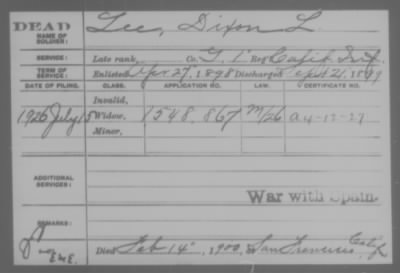 DEAD
NAME OF SOLDIER: Lee, Dixon L.
SERVICE: Late rank, Co. G, 1" Reg't Calif. Inf.
TERM OF SERVICE: Enlisted Apr 27, 1898 Discharged Sept 21, 1899
DATE OF FILING. CLASS. APPLICATION NO. LAW. CERTIFICATE NO.
Invalid,
1926 July 15 Widow, 1548,867 A-4-17-27
Minor,
ADDITIONAL SERVICES:
War with Spain.
REMARKS:
Died Feb 14", 1900, San Francisco Calif